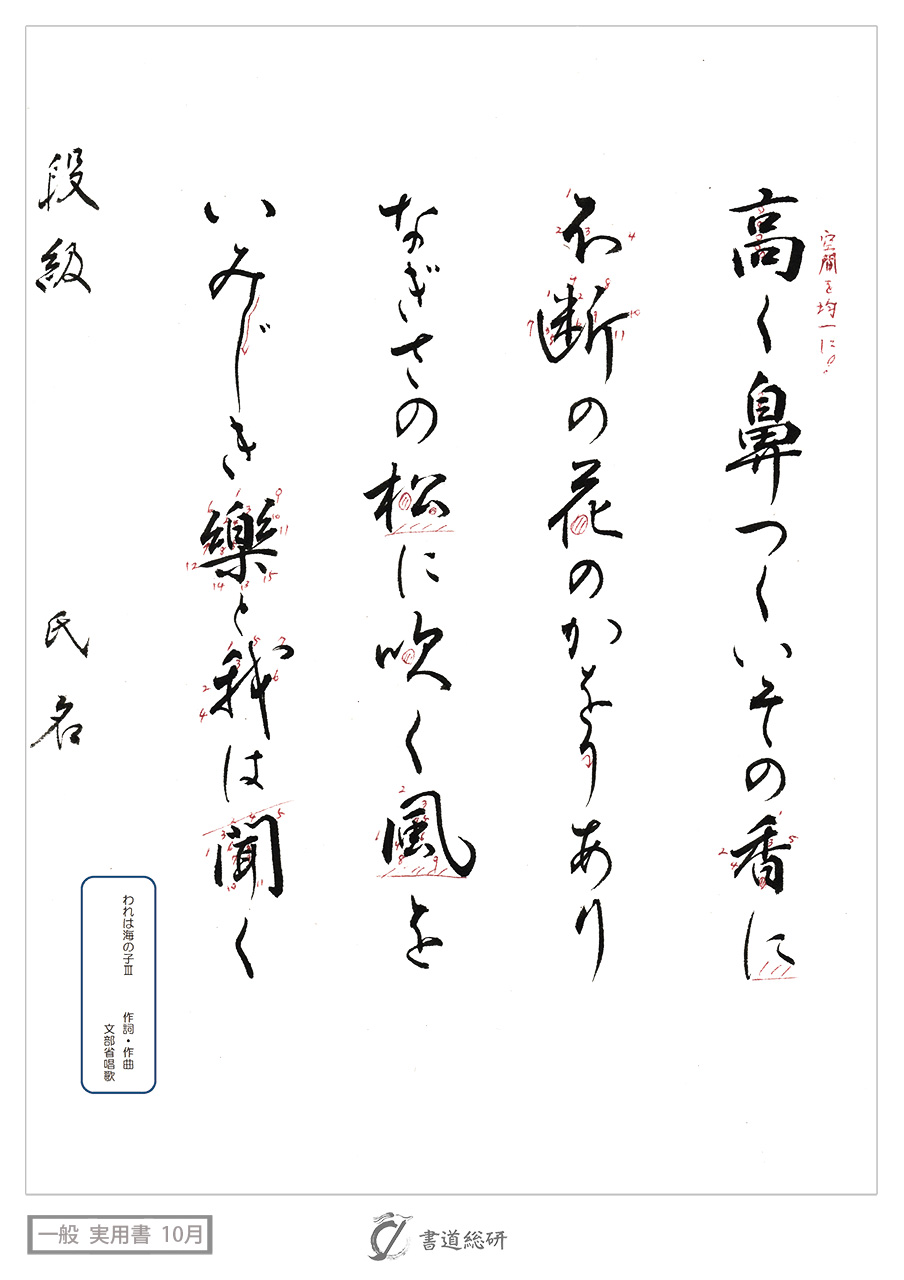 空間を均一に！
高く鼻つくいその香に
不断の花のかをりあり
なぎさの松に吹く風を
いみじき樂と我は聞く
段級 氏名
われは海の子Ⅲ
作詞・作曲
文部省唱歌
一般 実用書 10月
書道総研